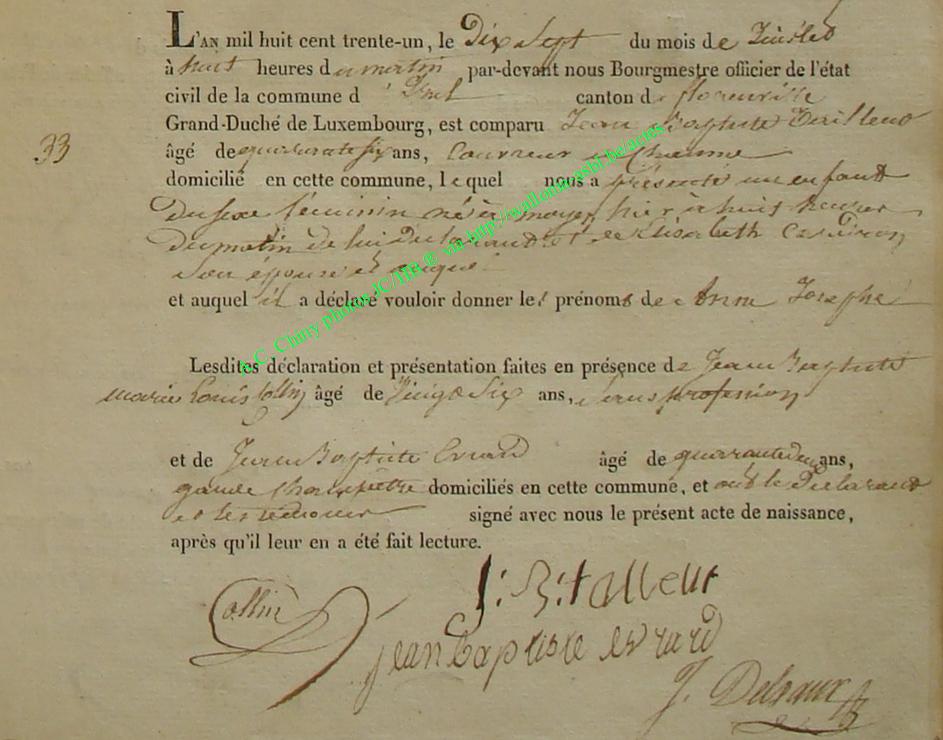 L'AN mil huit cent trente-un, le Dix Sept du mois de Juillet
à huit heures du matin par-devant nous Bourgmestre officier de l'état
civil de la commune d' canton de florenville
Grand-Duché de Luxembourg, est comparu Jean Baptiste Tailleur
33
âgé de quarante six ans, couvreur en Chaume
domicilié en cette commune, lequel nous a présenté un enfant
du sexe féminin né à moyen hier à huit heures
du matin de lui Déclarant et de Elisabeth
Son épouse et auquel
et auquel il a déclaré vouloir donner les prénoms de Anne Josephe
Lesdites déclaration et présentation faites en présence de Jean Baptiste
marie Louis Collin âgé de Vingt Six ans, Sans profession
et de Jean Baptiste Evrard âgé de quarante deux ans,
garde Champêtre domiciliés en cette commune, et ont le Déclarant
et les témoins signé avec nous le présent acte de naissance,
après qu'il leur en a été fait lecture.
J: B: tallleur
Collin
jean baptiste evrard
J. Delvaux
A.C. Chiny photos JC/HB ® via http://wallonia-asbl.be/actes